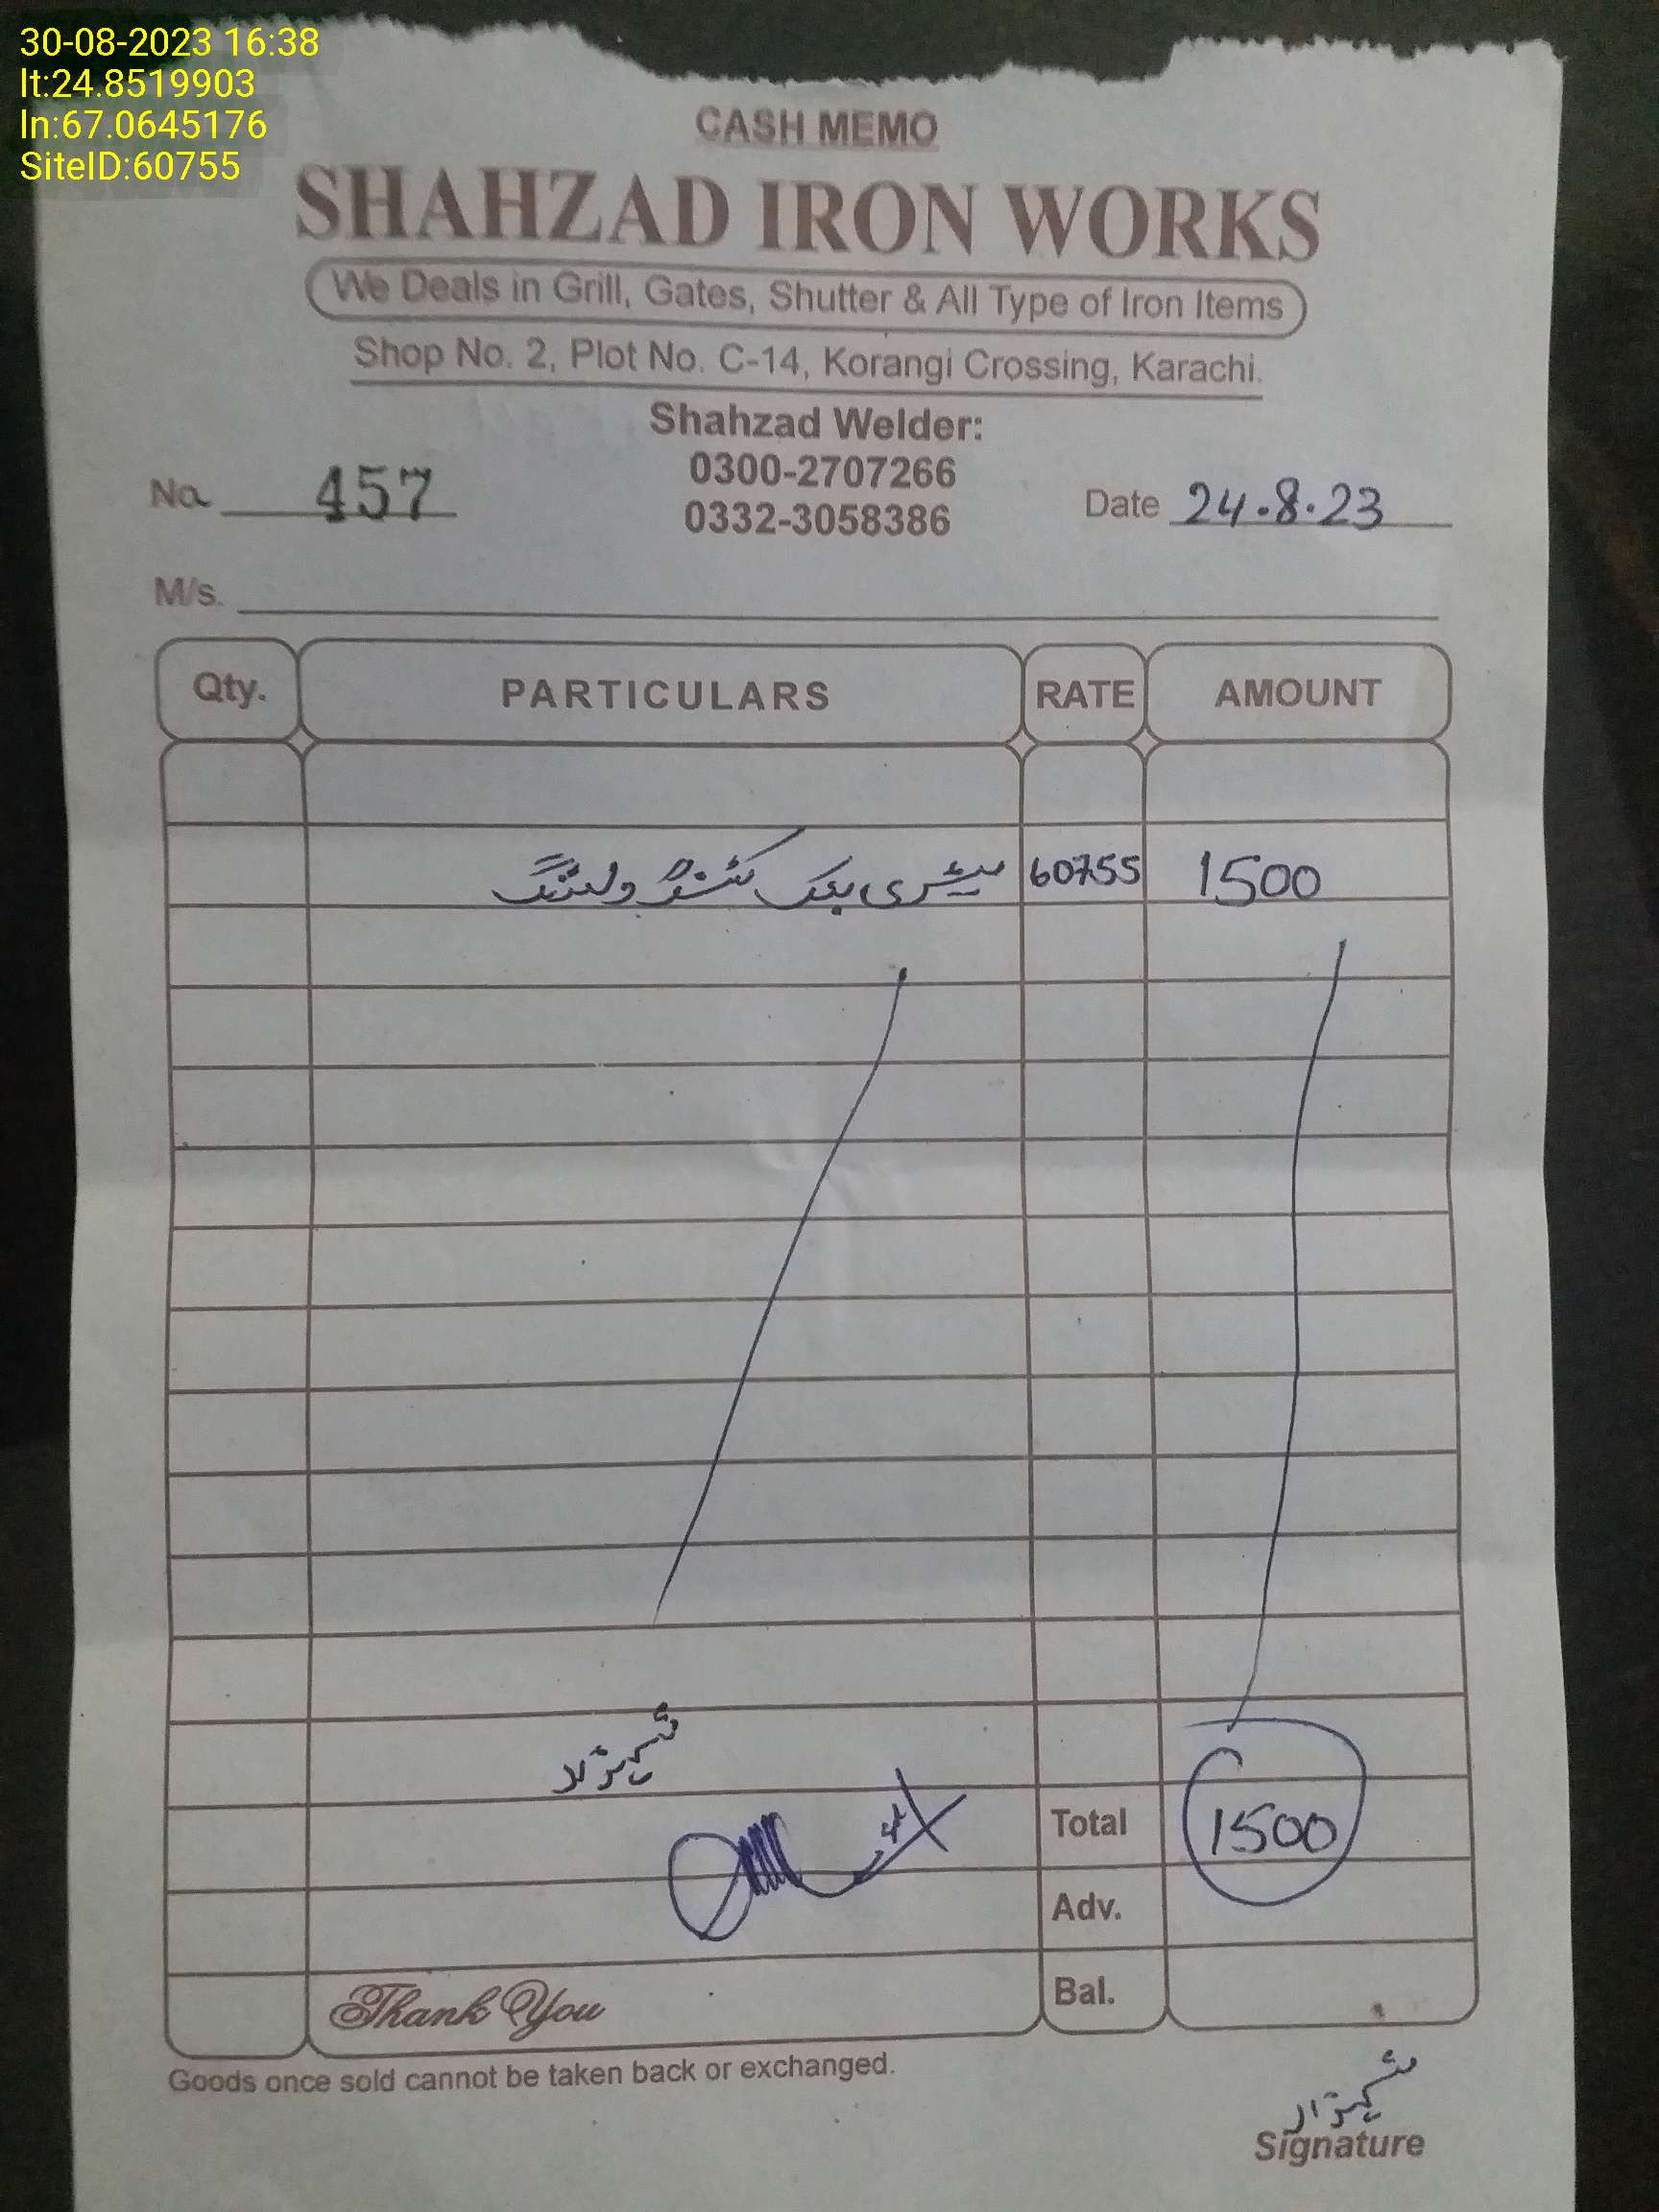 30-08-2023 16:38
lt:24.8519903
ln:67.0645176
SiteID:60755
CASH MEMO
SHAHZAD IRON WORKS
We Deals in Grill, Gates, Shutter & All Type of Iron Items
Shop No. 2, Plot No. C-14, Korangi Crossing, Karachi.
Shahzad Welder:
0300-2707266
0332-3058386
No. 457 Date 24.8.23
M/s.
Qty. PARTICULARS RATE AMOUNT
بیٹری بکس ولڈنگ 60755 1500
Total 1500
Adv.
Bal.
Thank You
Goods once sold cannot be taken back or exchanged.
Signature